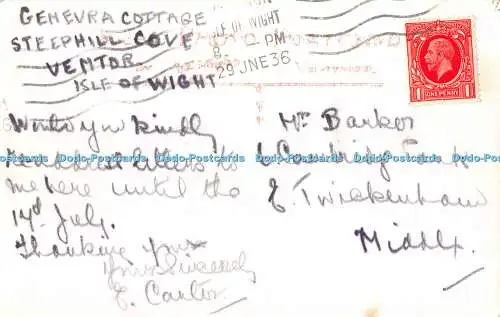 GENEVRA COTTAGE
STEEPHILL COVE
VENTOR
ISLE OF WIGHT
OF WIGHT
PM
29 JNE 36
ONE PENNY
1 1
Would you kindly
letters to
me here until the
17th July.
Thanking you
Yours Sincerely
E. Cantor.
Mr Barker
6 Cambridge Park
E. Twickenham
Middlx.
Dodo-Postcards Dodo-Postcards Dodo-Postcards Dodo-Postcards Dodo-Postcards Dodo-Postcards